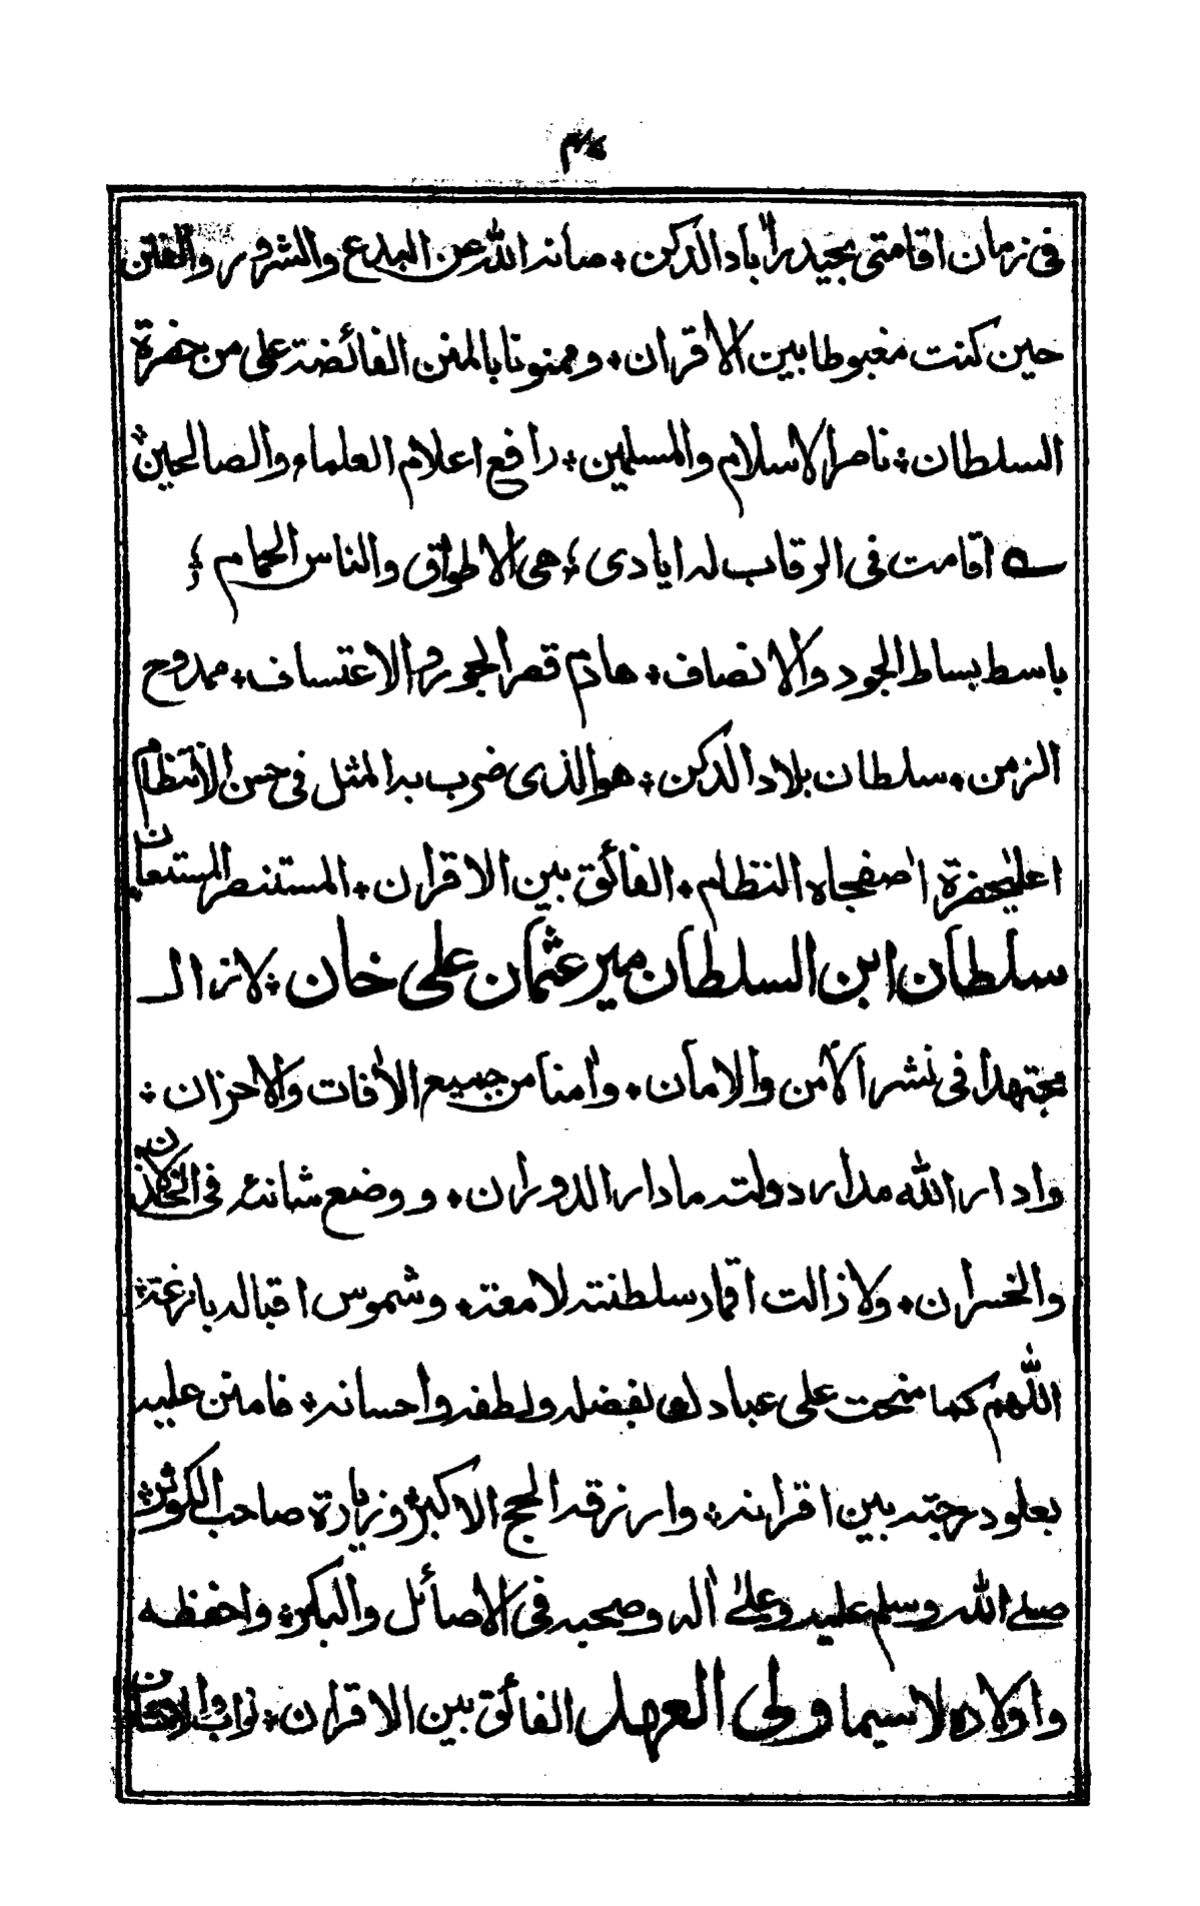 في زمان اقامتي بحيدراباد الدكن * صانه الله عن البدع والشرور والفتن
حين كنت مغبوطا بين الاقران * وممنونا بالمنن الفائضة على من حضرة
السلطان * ناصر الاسلام والمسلمين * رافع اعلام العلماء والصالحين *
اقامت في الرقاب له ايادى ؛ هي الاطواق والناس الحمام ؛
باسط بساط الجود والانصاف * هادم قصر الجور والاعتساف * ممدوح
الزمن * سلطان بلاد الدكن * هو الذى ضرب به المثل في حسن الانتظام
اعلىحضرة اصفجاه النظام * الفائق بين الاقران * المستنصر المستعان
سلطان ابن السلطان مير عثمان على خان * لازال
مجتهدا في نشر الأمن والامان * وامنا من جميع الأفات والاحزان *
وادار الله مدار دولته مادار الدوران * ووضع شانئه في الخذلان
والخسران * ولا زالت اقمار سلطنته لامعة * وشموس اقباله بازغة *
اللهم كما منحت على عبادك بفضله ولطفه واحسانه * فامنن عليه
بعلو درجته بين اقرانه * وارزقه الحج الاكبر * وزيارة صاحب الكوثر *
صلى الله وسلم عليه وعلىٰ اله وصحبه في الاصائل والبكر * واحفظه
واولاده لاسيما ولى العهد الفائق بين الاقران * نواب